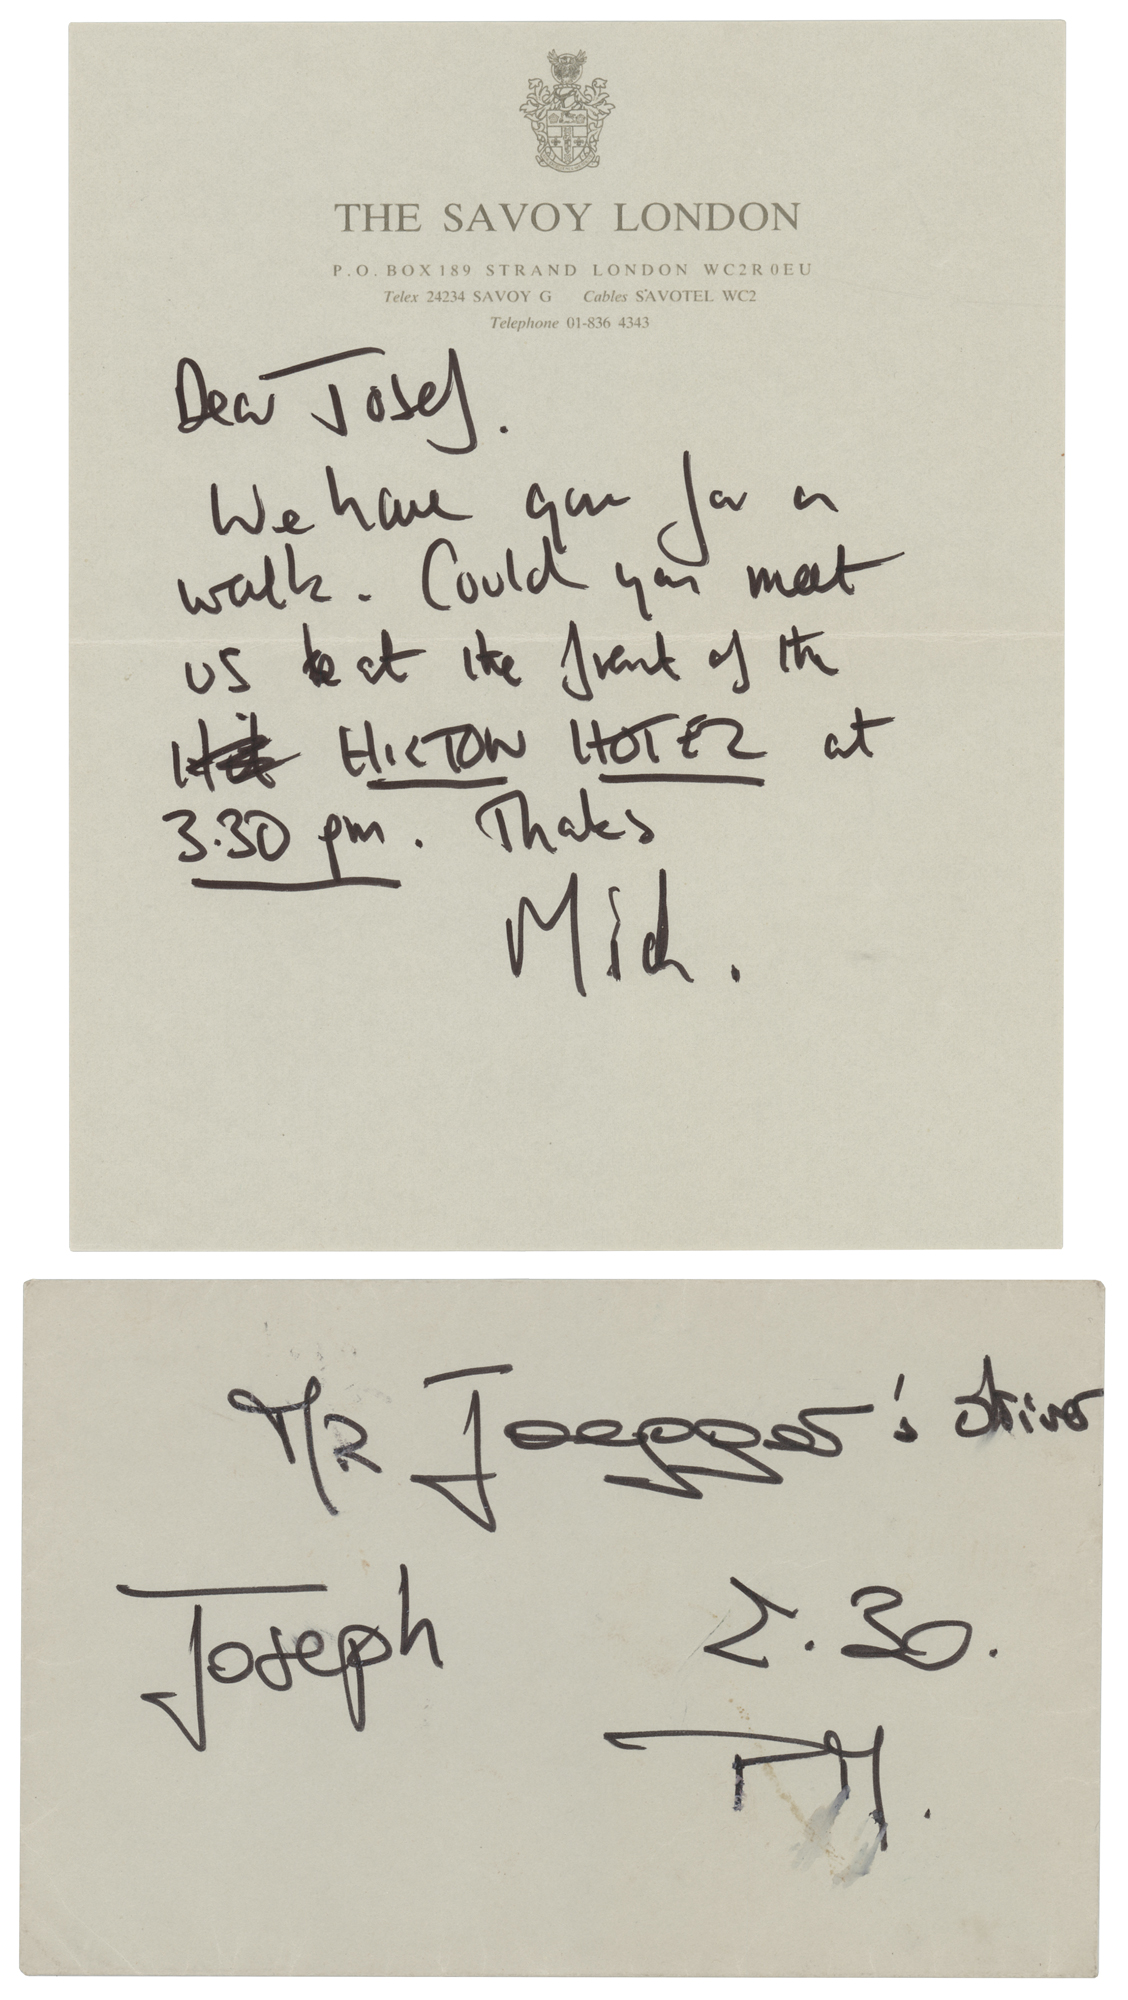 THE SAVOY LONDON
P.O. BOX 189 STRAND LONDON WC2R 0EU
Telex 24234 SAVOY G Cables SAVOTEL WC2
Telephone 01-836 4343
Dear Josef.
We have gone for a
walk. Could you meet
us at the front of the
HILTON HOTEL at
3.30 pm. Thanks
Mick.
MR Joegger's driver
Joseph 2.30.
PM.